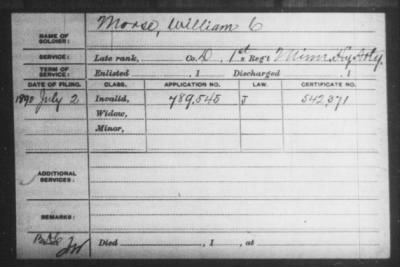 NAME OF SOLDIER: Morse, William C
SERVICE: Late rank, Co. D, 1st Reg't Minn. Hy. Arty.
TERM OF SERVICE: Enlisted , 1 Discharged , 1
DATE OF FILING. CLASS. APPLICATION NO. LAW. CERTIFICATE NO.
1890 July 2 Invalid, 789,545 J 542,371
Widow,
Minor,
ADDITIONAL SERVICES:
REMARKS:
Died , 1 , at